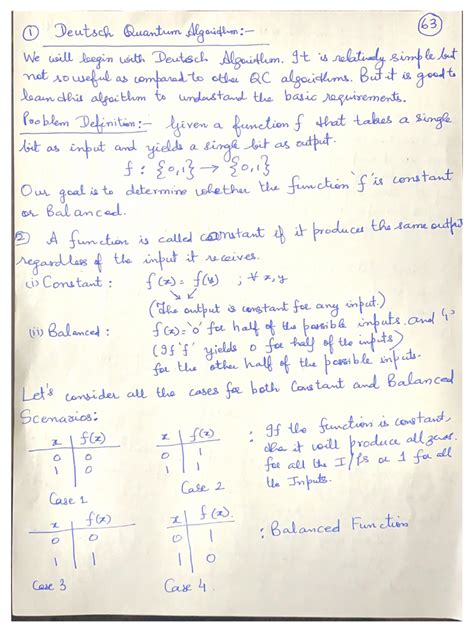 63
① Deutsch Quantum Algorithm:-
We will begin with Deutsch Algorithm. It is relatively simple but
not so useful as compared to other QC algorithms. But it is good to
learn this algorithm to understand the basic requirements.
Problem Definition:- Given a function f that takes a single
bit as input and yields a single bit as output.
f : {0,1} → {0,1}
Our goal is to determine whether the function 'f' is constant
or Balanced.
② A function is called constant if it produces the same output
regardless of the input it receives.
(i) Constant : f(x) = f(y) ; ∀ x,y
(The output is constant for any input.)
(ii) Balanced : f(x) = '0' for half of the possible inputs. and '1'
(If 'f' yields 0 for half of the inputs)
for the other half of the possible inputs.
Let's consider all the cases for both Constant and Balanced
Scenarios:
x f(x)
0 0
1 0
Case 1
x f(x)
0 1
1 1
Case 2
: If the function is constant,
it will produce all zeros
for all the I/Ps or 1 for all
the Inputs.
x f(x)
0 0
1 1
Case 3
x f(x)
0 1
1 0
Case 4.
: Balanced Function